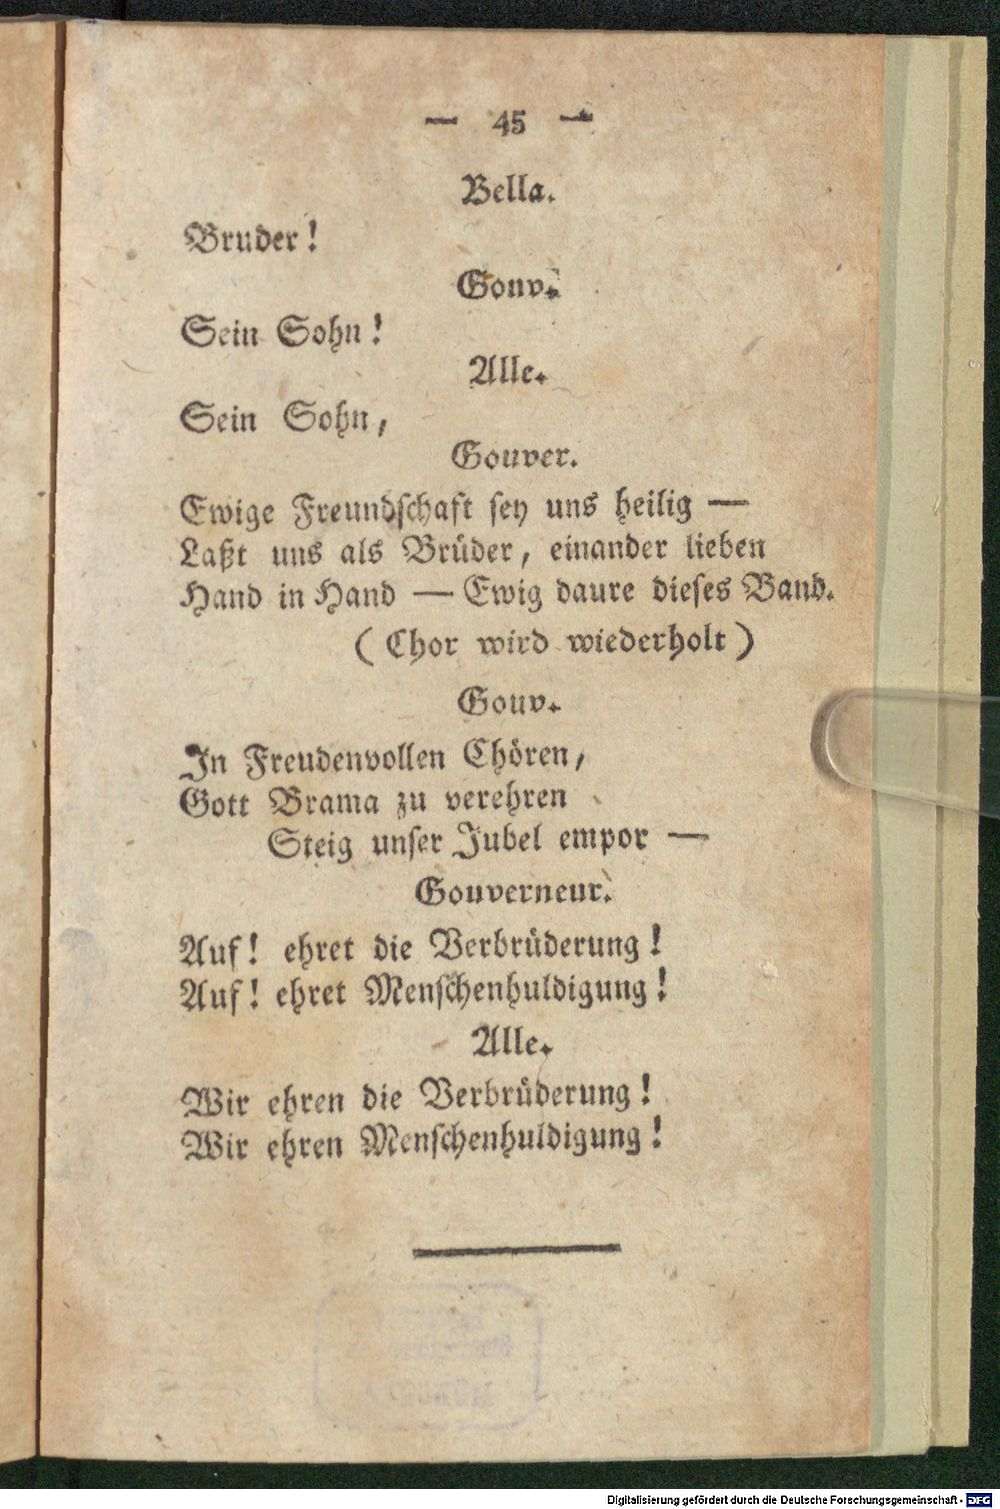 — 45 —
Bella.
Bruder!
Gouv.
Sein Sohn!
Alle.
Sein Sohn,
Gouver.
Ewige Freundschaft sey uns heilig —
Laßt uns als Brüder, einander lieben
Hand in Hand — Ewig daure dieses Band.
(Chor wird wiederholt)
Gouv.
In Freudenvollen Chören,
Gott Brama zu verehren
Steig unser Jubel empor —
Gouverneur.
Auf! ehret die Verbrüderung!
Auf! ehret Menschenhuldigung!
Alle.
Wir ehren die Verbrüderung!
Wir ehren Menschenhuldigung!
Digitalisierung gefördert durch die Deutsche Forschungsgemeinschaft - DFG